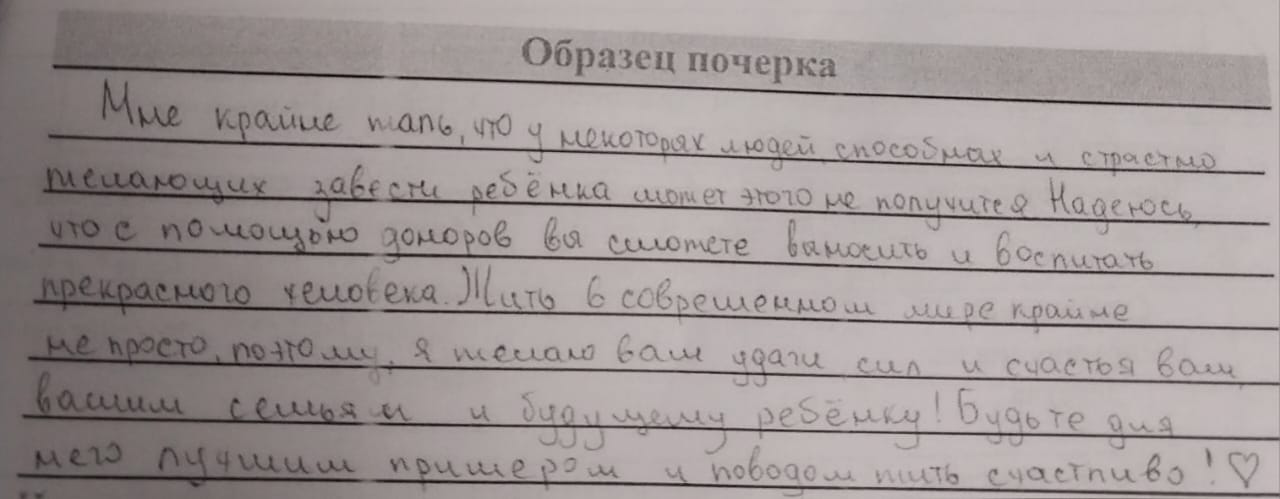 Образец почерка
Мне крайне жаль, что у некоторых людей, способных и страстно
желающих завести ребёнка может этого не получится. Надеюсь,
что с помощью доноров вы сможете выносить и воспитать
прекрасного человека. Жить в современном мире крайне
не просто, поэтому, я желаю вам удачи, сил и счастья вам,
вашим семьям и будущему ребёнку! Будьте для
него лучшим примером и поводом жить счастливо! ♡